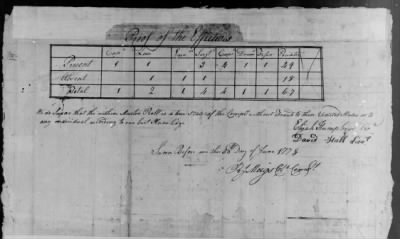 Proof of the Effectives
Capt Lieu Ens Serjt Corpl Drum Fifer Privates
Present 1 1 3 4 1 1 24
Absent 1 1 1 18
Total 1 2 1 4 4 1 1 67
We do Swear that the within Muster Roll is a true State of the Compy without Fraud to these United States or to
any Individual according to our best Knowledge
David Hall Lieut
Sworn Before me this Day of June 1778
Meigs